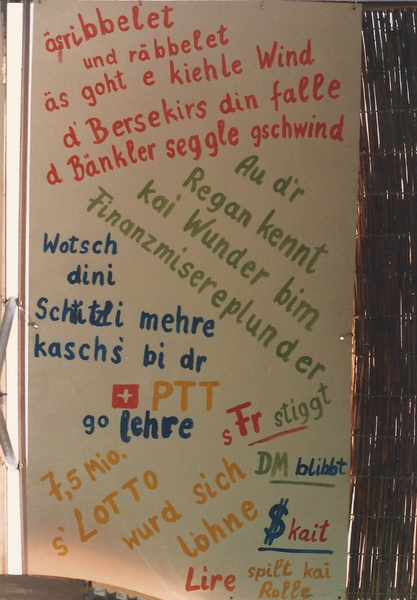 äsribbelet
und räbbelet
äs goht e kiehle Wind
d' Bersekirs din falle
d Bänkler seggle gschwind
Au d'r
Regan kennt
kai Wunder bim
Finanzmisereplunder
Wotsch
dini
Schtitzli mehre
kaschs bi dr
PTT
go lehre
s Fr stiggt
DM blibbt
$ kait
Lire spilt kai
Rolle
7,5 Mio.
s' LOTTO
wurd sich
löhne